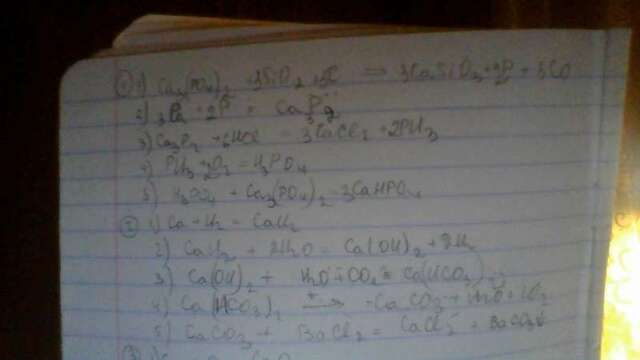 1) 1) Ca3(PO4)2 + 3SiO2 + 5C = 3CaSiO3 + 2P + 5CO
2) 3Ca + 2P = Ca3P2
3) Ca3P2 + 6HCl = 3CaCl2 + 2PH3
4) PH3 + 2O2 = H3PO4
5) H3PO4 + Ca3(PO4)2 = 3CaHPO4
2) 1) Ca + H2 = CaH2
2) CaH2 + 2H2O = Ca(OH)2 + 2H2
3) Ca(OH)2 + H2O + CO2 = Ca(HCO3)2
4) Ca(HCO3)2 → CaCO3 + H2O + CO2
5) CaCO3 + BaCl2 = CaCl2 + BaCO3↓